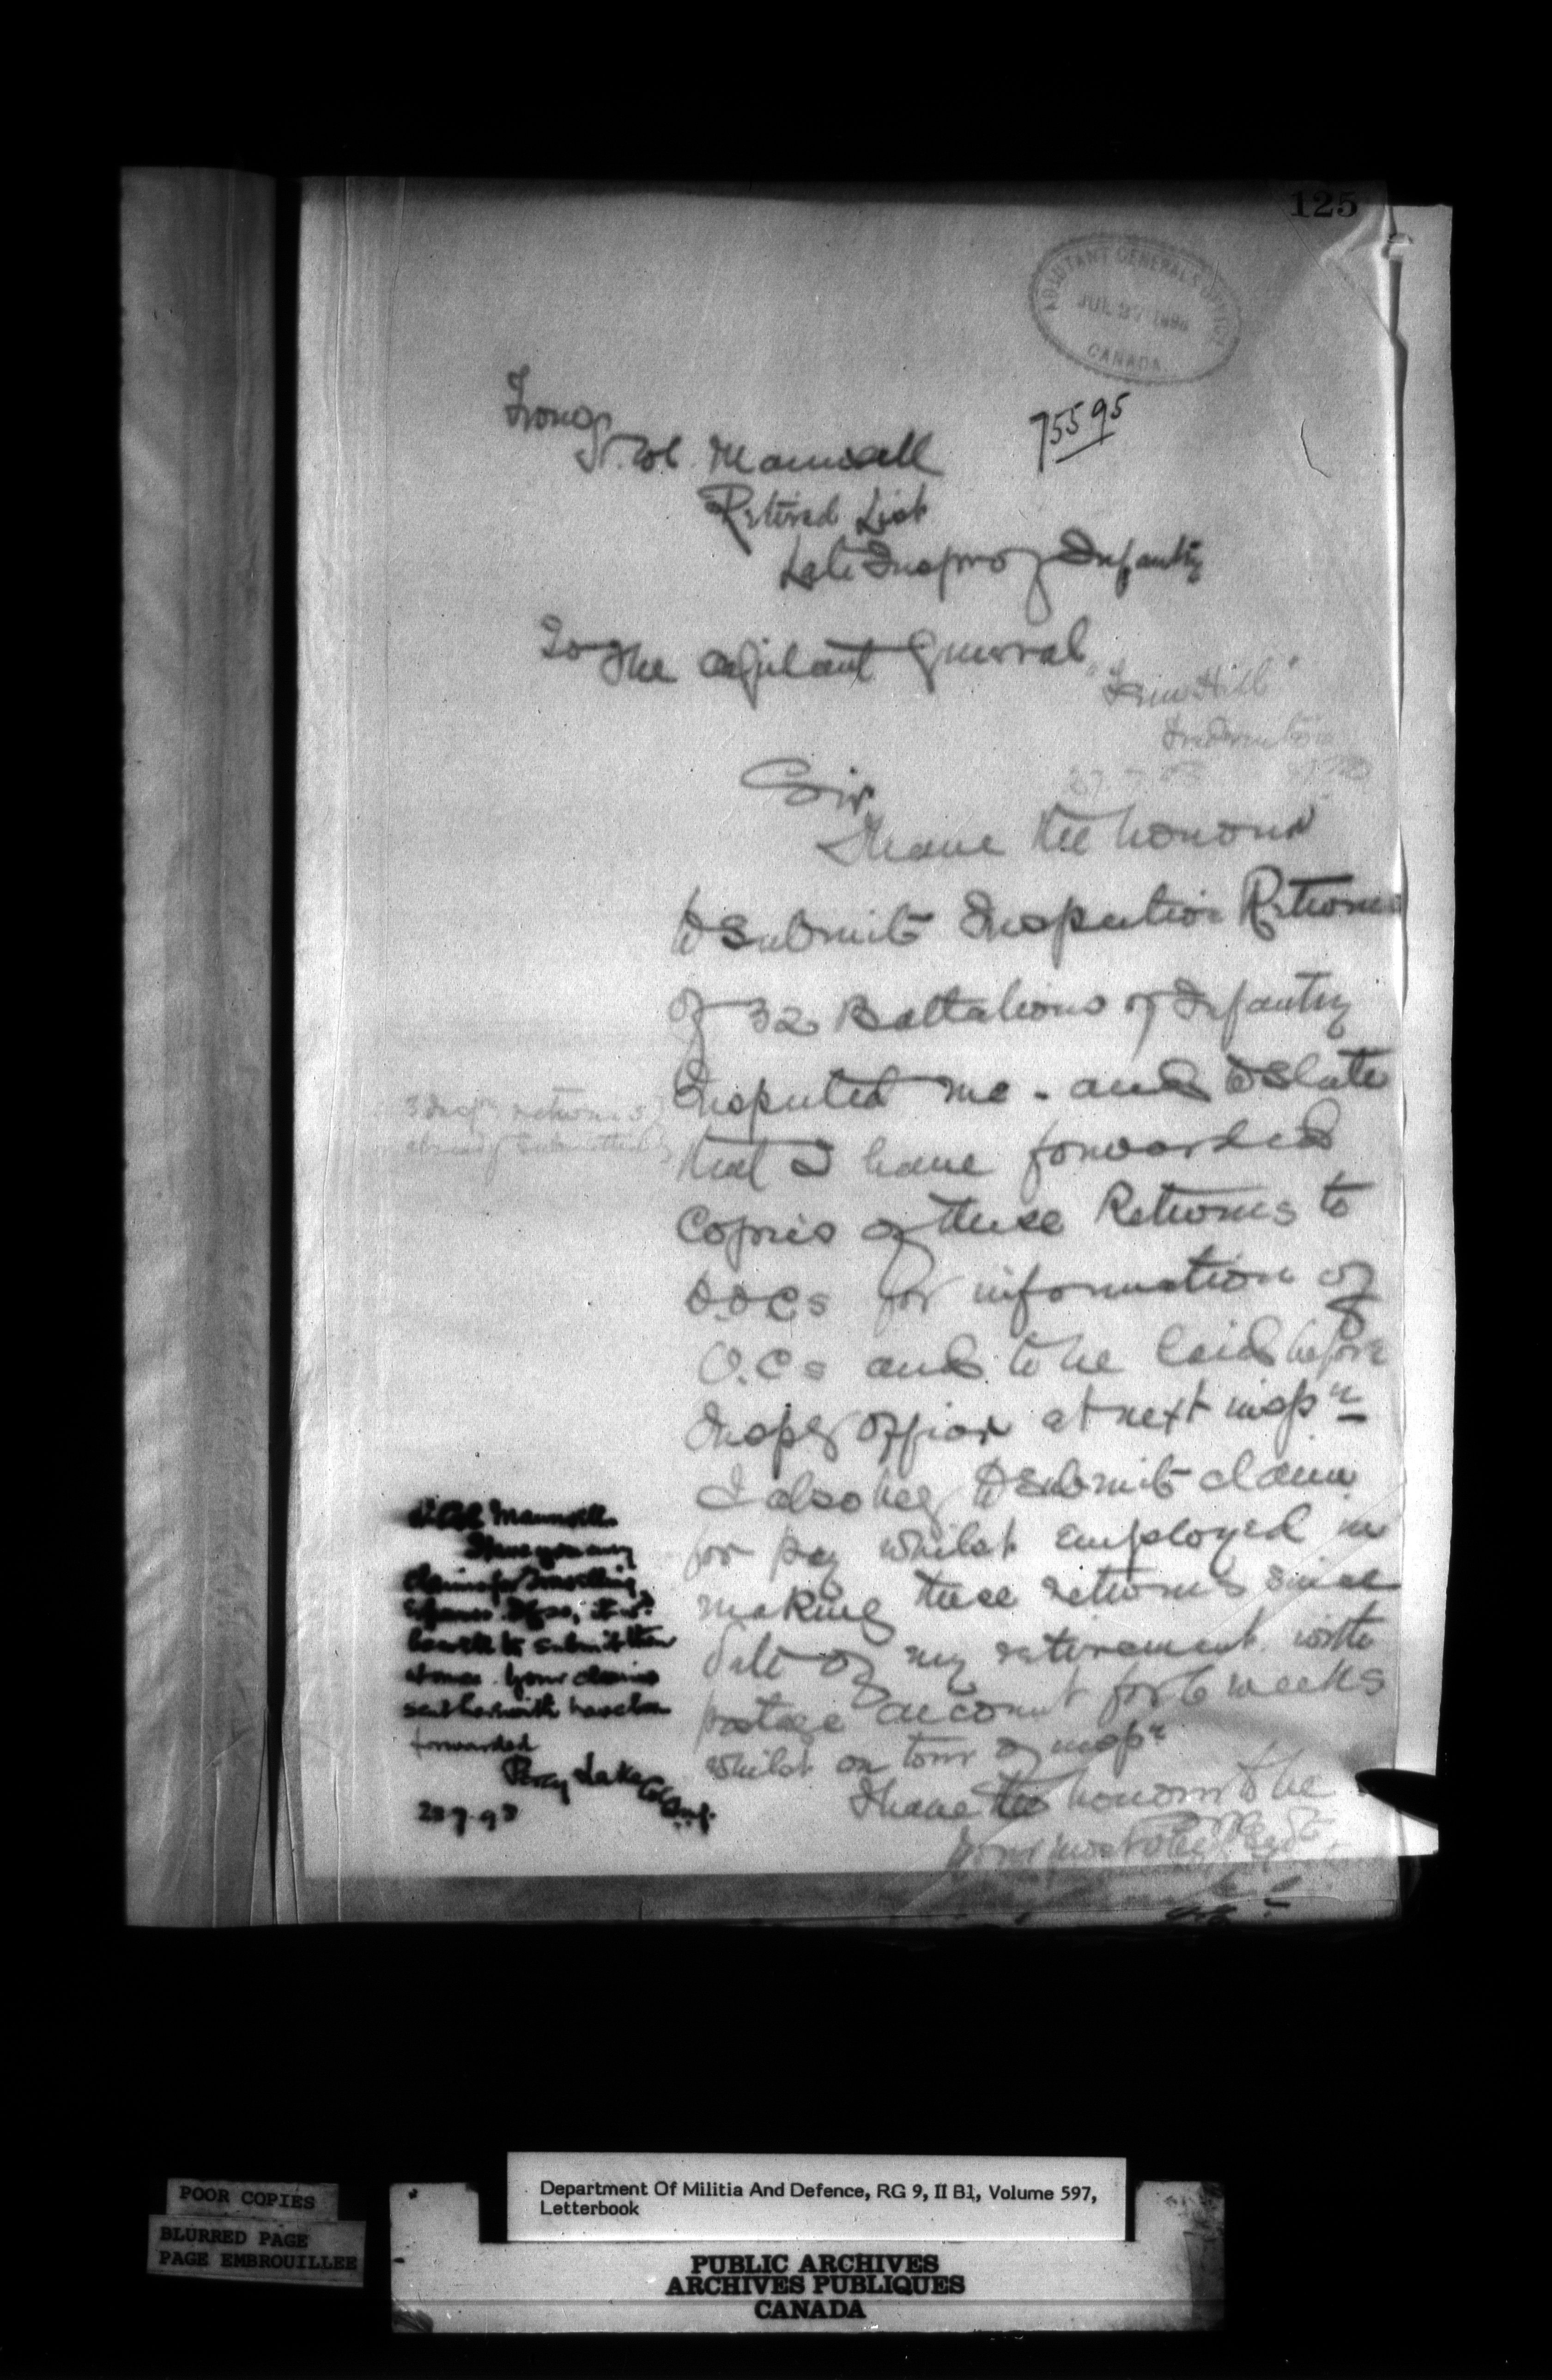 125
ADJUTANT GENERAL'S OFFICE
JUL 27 1898
CANADA
75595
From
Lt. Col. Maunsell
Retired List
Late Inspr of Infantry
To The Adjutant General
"Fern Hill"
Fredericton
27.7.98
Sir
I have the honour
to submit Inspection Returns
of 32 Battalions of Infantry
Inspected me - and to state
that I have forwarded
Copies of these Returns to
D.O.C.s for information of
O.C.s and to be laid before
Inspg Officer at next inspn
I also beg to submit claim
for pay whilst employed in
making these returns since
date of my retirement with
postage account for 6 weeks
whilst on tour of inspn
I have the honour to be
3 Inspn returns
already submitted
Lt Col Maunsell.
Have you any
claims for travelling
Expenses. If so, it wd
be well to submit them
at once. Your claims
sent herewith have been
forwarded
Percy Lake Col
28.7.98
POOR COPIES
BLURRED PAGE
PAGE EMBROUILLEE
Department Of Militia And Defence, RG 9, II B1, Volume 597,
Letterbook
PUBLIC ARCHIVES
ARCHIVES PUBLIQUES
CANADA